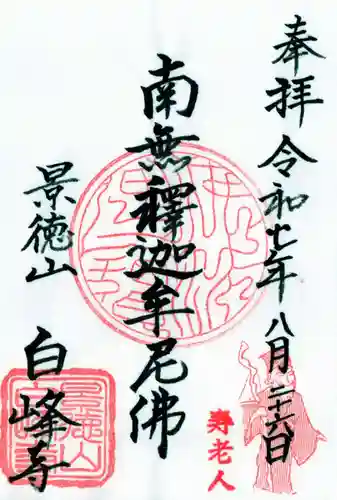 奉拝 令和七年八月二十六日
南無釋迦牟尼佛
景徳山 白峰寺
寿老人